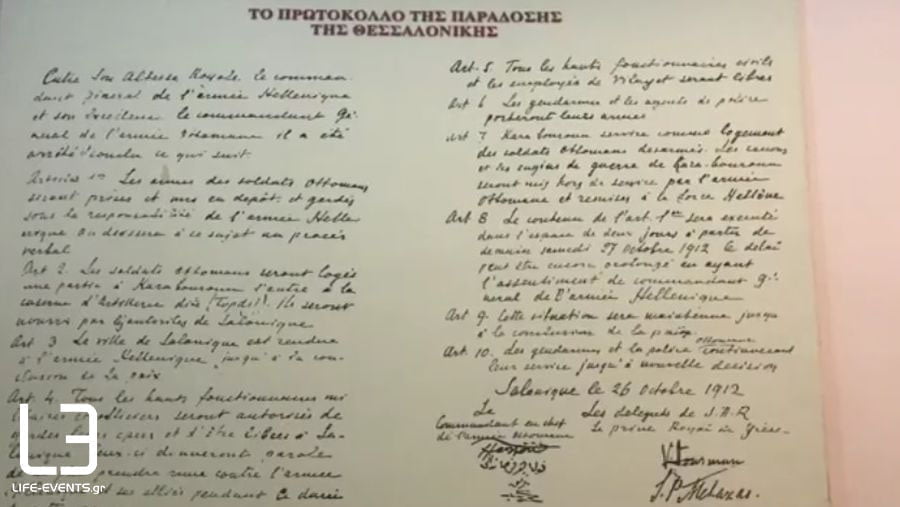 ΤΟ ΠΡΩΤΟΚΟΛΛΟ ΤΗΣ ΠΑΡΑΔΟΣΗΣ
ΤΗΣ ΘΕΣΣΑΛΟΝΙΚΗΣ
Entre Son Altesse Royale le comman-
dant general de l'armée Hellenique
et son Excellence le commandant Gé-
neral de l'armée ottomane il a été
arrêté et conclu ce qui suit.
Les armes des soldats Ottomans
seront prises et mis en depôt et gardés
sous la responsabilité de l'armée Helle-
nique On dressera à ce sujet un procès
verbal
Art 2. Les soldats ottomans seront logés
une partie à Karabouroun l'autre à la
caserne d'Artillerie dite (Topdji). Ils seront
nourris par les autorités de Salonique
Art. 3 La ville de Salonique est rendue
à l'armée Hellenique jusqu'à la con-
clusion de la paix
Art. 4. Tous les hauts fonctionnaires mi-
litaires et officiers seront autorisés de
garder leurs epées et d'être libres à Sa-
lonique Ceux-ci donneront parole
de prendre contre l'armée
et ses alliés pendant la durée
Art. 5. Tous les hauts fonctionnaires civils
et les employés de Vilayet seront libres
Art 6 Les gendarmes et les agents de police
porteront leurs armes
Art 7 Karabouroun servira comme logement
des soldats Ottomans desarmés. Les canons
et les engins de guerre de Kara-bouroun
seront mis hors de service par l'armée
Ottomane et remises à la force Hellène
Art 8 Le contenu de l'art. 1er sera executé
dans l'espace de deux jours à partir de
demain samedi 27 Octobre 1912 le delai
peut être encore prolongé en ayant
l'assentiment de commandant gé-
neral de l'armée Hellenique
Art 9. Cette situation sera maintenue jusqu'
à la conclusion de la paix
Art. 10. Les gendarmes et la police ottomane continueront
leur service jusqu'à nouvelle decision
Salonique le 26 octobre 1912
Le
Commandant en chef
de l'armée ottomane
Les delegués de S.A.R
Le prince Royal de Grèce
L3
LIFE-EVENTS.gr